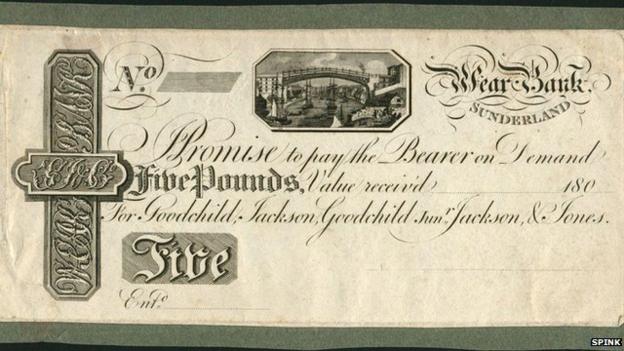 No.
Wear Bank.
SUNDERLAND
WEAR BANK
I Promise to pay the Bearer on Demand
Five Pounds, Value receiv'd 180
For Goodchild, Jackson, Goodchild Junr. Jackson, & Jones.
Five
Entd.
SPINK